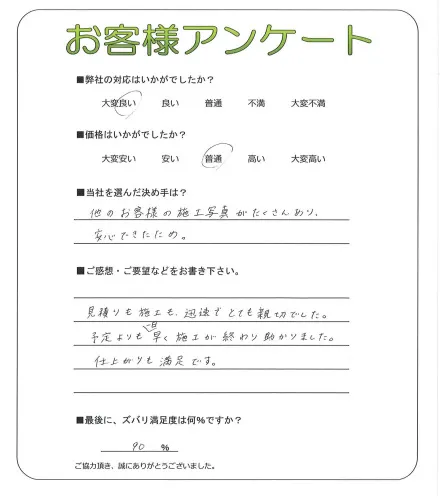 お客様アンケート
■弊社の対応はいかがでしたか？
大変良い 良い 普通 不満 大変不満
■価格はいかがでしたか？
大変安い 安い 普通 高い 大変高い
■当社を選んだ決め手は？
他のお客様の施工写真がたくさんあり、
安心できたため。
■ご感想・ご要望などをお書き下さい。
見積りも施工も、迅速でとても親切でした。
予定よりも一日早く施工が終わり助かりました。
仕上がりも満足です。
■最後に、ズバリ満足度は何％ですか？
90 ％
ご協力頂き、誠にありがとうございました。